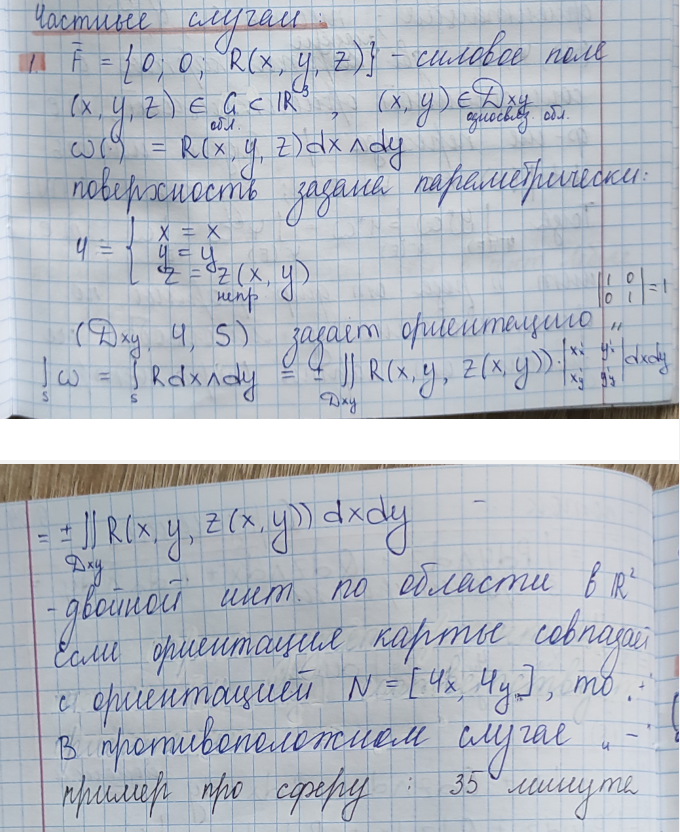 Частные случаи:
1. F̄ = {0; 0; R(x, y, z)} - силовое поле
(x, y, z) ∈ G ⊂ ℝ³, (x, y) ∈ Dxy
обл. односвяз. обл.
ω(·) = R(x, y, z)dx∧dy
поверхность задана параметрически:
Ч = { x = x
y = y
z = z(x, y)
непр
|1 0
0 1| = 1
(Dxy, Ч, S) задает ориентацию "
∫ₛ ω = ∫ₛ Rdx∧dy = ± ∬ R(x, y, z(x, y))·|x'ₓ y'ₓ
x'y y'y| dxdy
Dxy
= ± ∬ R(x, y, z(x, y)) dxdy
Dxy
- двойной инт. по области в ℝ²
Если ориентация карты совпадай
с ориентацией N = [Чx, Чy], то "+
В противоположном случае "-"
пример про сферу: 35 минута